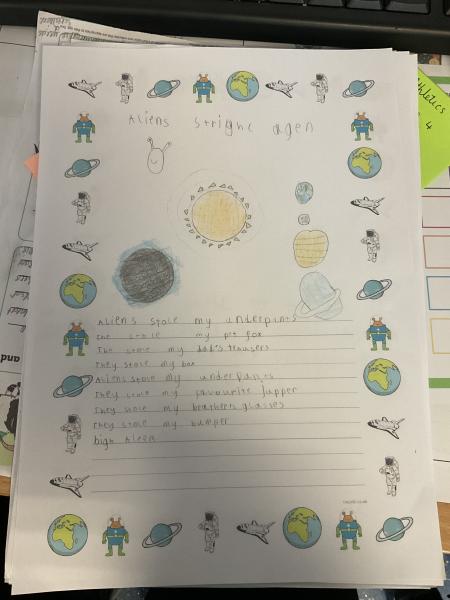 Aliens stright agen
Aliens stole my underpints
the stole my pet fox
The stole my dad's trousers
They stole my box
Aliens stole my underpants
They stole my favourite Jupper
They stole my brothers glasses
They stole my bumper
thletics
4
and